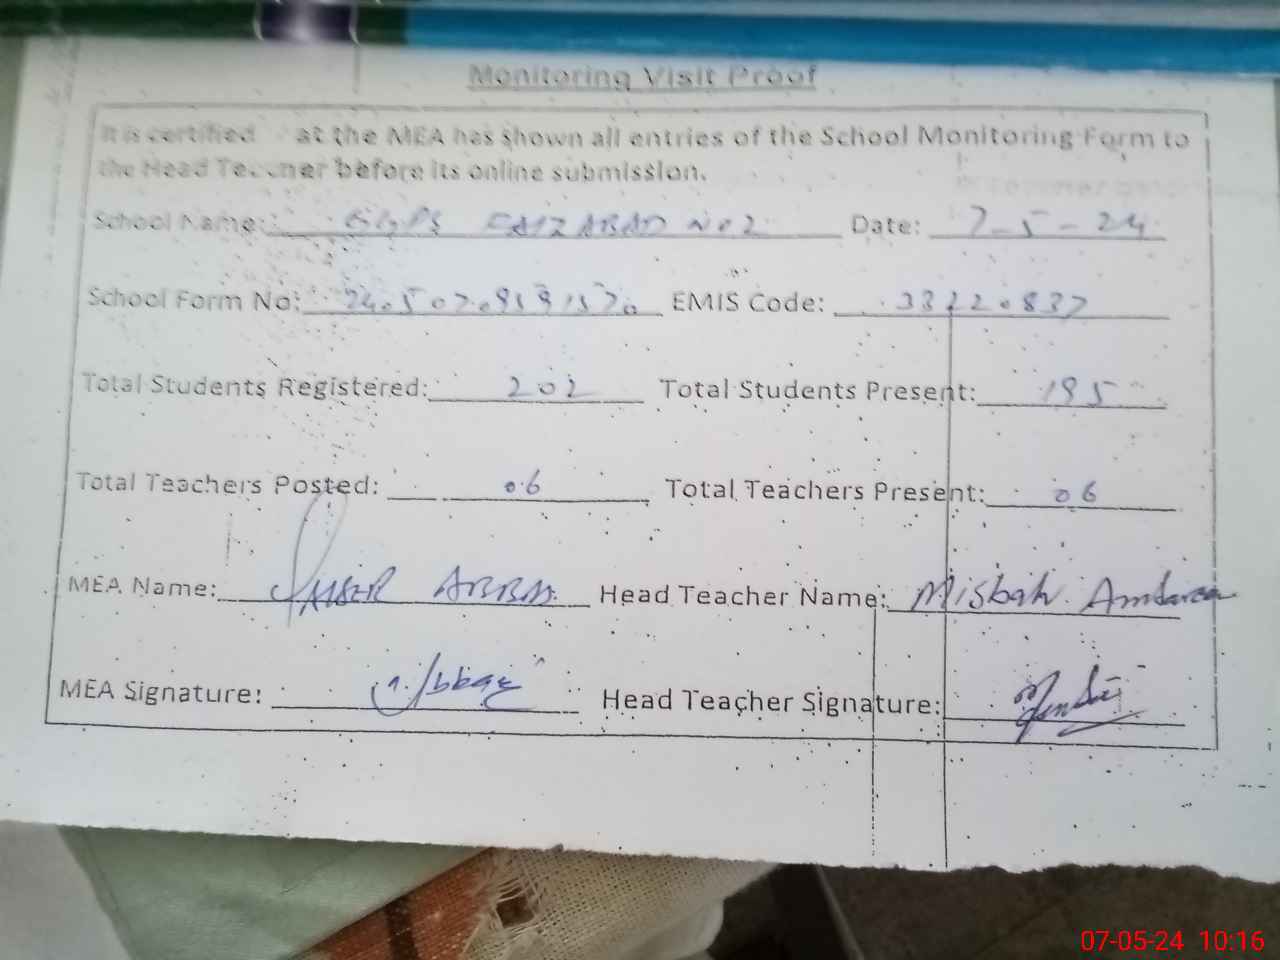 Monitoring Visit Proof
It is certified at the MEA has shown all entries of the School Monitoring Form to
the Head Teacher before its online submission.
School Name: GGPS FAIZABAD No 2 Date: 7-5-24
School Form No: EMIS Code:
Total Students Registered: 202 Total Students Present: 195
Total Teachers Posted: 06 Total Teachers Present: 06
MEA Name: ABBAS Head Teacher Name: Misbah
MEA Signature: Head Teacher Signature:
07-05-24 10:16